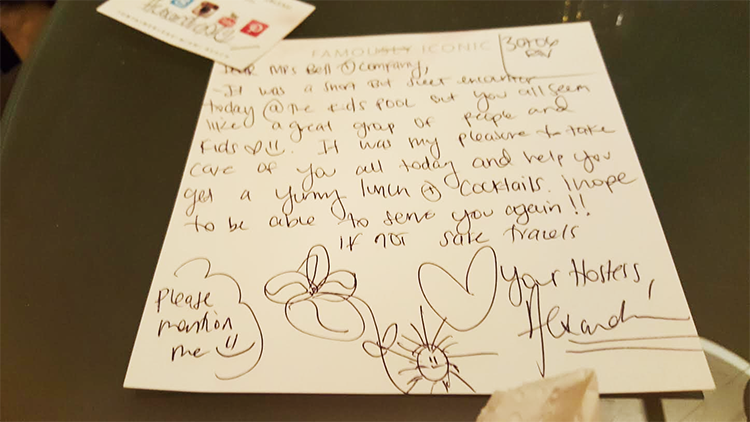 FAMOUSLY ICONIC
30706
Dear Mrs Bell & Company,
- It was a short but sweet encounter
today @ the kids pool but you all seem
like a great group of people and
kids ♡ !! It was my pleasure to take
care of you all today and help you
get a yummy lunch & cocktails. I hope
to be able to serve you again!!
If not safe travels
Please
mention
me
Your Hostess,